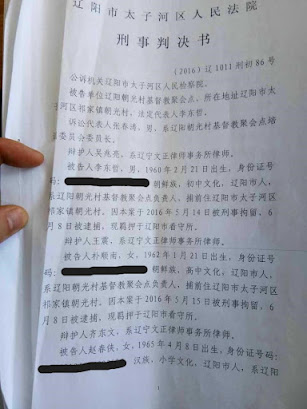 辽阳市太子河区人民法院
刑事判决书
（2016）辽1011刑初86号
公诉机关辽阳市太子河区人民检察院。
被告单位辽阳朝光村基督教聚会点，所在地址辽阳市太
子河区祁家镇朝光村，法定代表人李东哲。
诉讼代表人张春涛，男，系辽阳朝光村基督教聚会点培
委员公委员长。
辩护人吴兆亮，系辽宁文正律师事务所律师。
被告人李东哲，男，1960年2月21日出生，身份证号
码：
朝鲜族，初中文化，辽阳市人，
系辽阳朝光村基督教聚会点负责人，捕前住辽阳市太子河区
祁家镇朝光村。因本案于2016年5月14日被刑事拘留，6
月8日被逮捕，现羁押于辽阳市看守所。
辩护人王震，系辽宁文正律师事务所律师。
被告人朴顺南，女，1962年1月21日出生，身份证号
码：
朝鲜族，高中文化，辽阳市人，
系辽阳朝光村基督教聚会点负责人，捕前住辽阳市太子河区
祁家镇朝光村。因本案于2016年5月15日被刑事拘留，6
月8日被逮捕，现羁押于辽阳市看守所。
辩护人齐东文，系辽宁文正律师事务所律师。
被告人赵春侠，女，1965年4月8日出生，身份证号码：
汉族，小学文化，辽阳市人，系辽阳
1